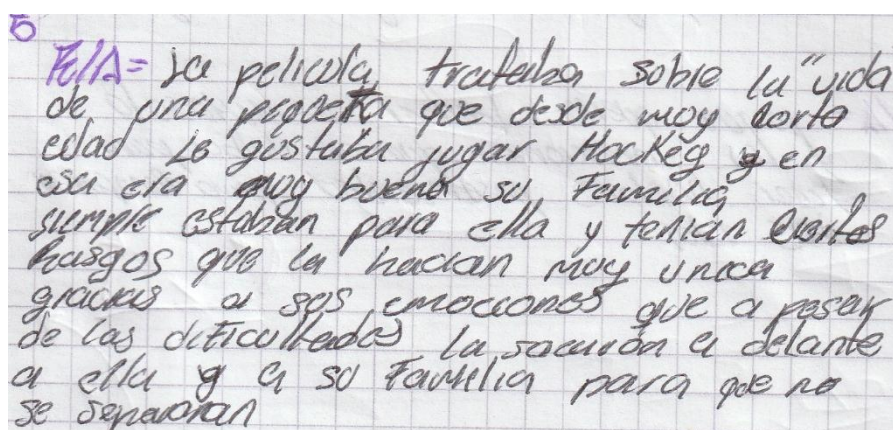 5
R//A= La pelicula, trataba sobre la "vida
de una pequeña que desde muy corta
edad Le gustaba jugar Hockey y en
esa era muy buena su Familia,
siempre estaban para ella y tenian ciertos
Rasgos que la hacian muy unica
gracias a sus emociones que a pesar
de las dificultades la sacarón a delante
a ella y a su Familia para que no
se separaran